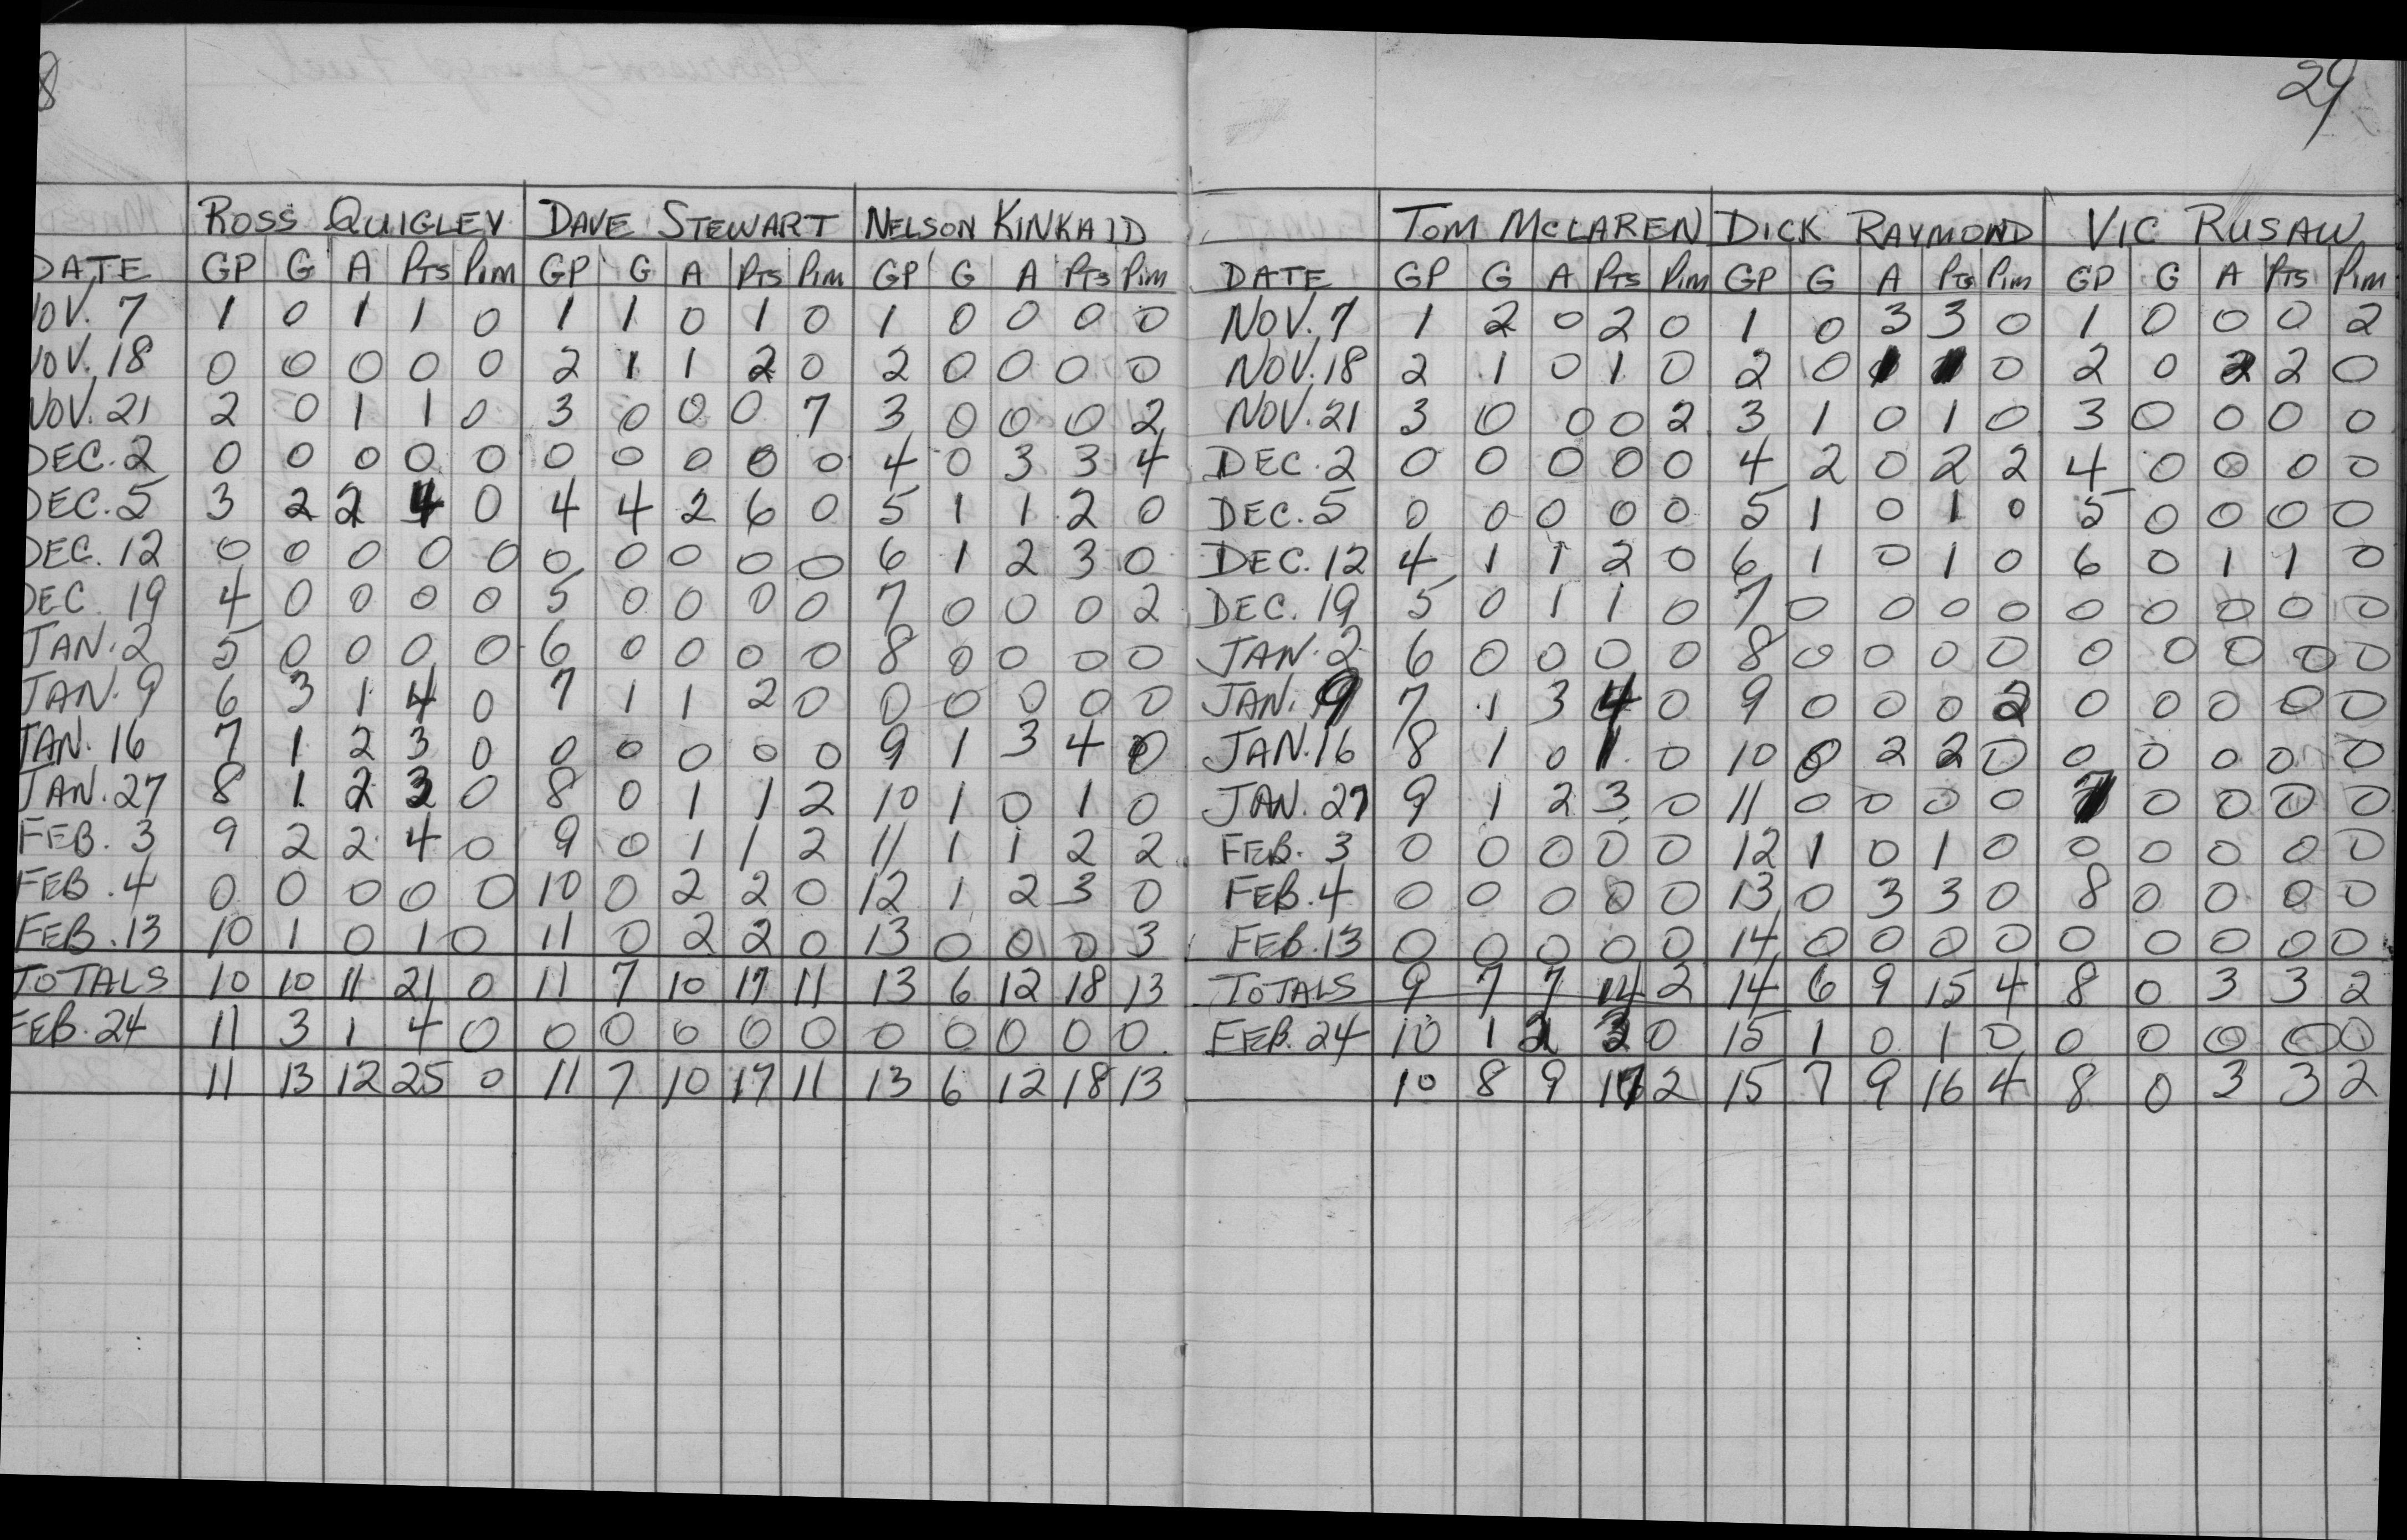 8
ROSS QUIGLEY DAVE STEWART NELSON KINKAID
DATE GP G A PTS PIM GP G A PTS PIM GP G A PTS PIM
NOV. 7 1 0 1 1 0 1 1 0 1 0 1 0 0 0 0
NOV. 18 0 0 0 0 0 2 1 1 2 0 2 0 0 0 0
NOV. 21 2 0 1 1 0 3 0 0 0 7 3 0 0 0 2
DEC. 2 0 0 0 0 0 0 0 0 0 0 4 0 3 3 4
DEC. 5 3 2 2 4 0 4 4 2 6 0 5 1 1 2 0
DEC. 12 0 0 0 0 0 0 0 0 0 0 6 1 2 3 0
DEC. 19 4 0 0 0 0 5 0 0 0 0 7 0 0 0 2
JAN. 2 5 0 0 0 0 6 0 0 0 0 8 0 0 0 0
JAN. 9 6 3 1 4 0 7 1 1 2 0 0 0 0 0 0
JAN. 16 7 1 2 3 0 0 0 0 0 0 9 1 3 4 0
JAN. 27 8 1 2 3 0 8 0 1 1 2 10 1 0 1 0
FEB. 3 9 2 2 4 0 9 0 1 1 2 11 1 1 2 2
FEB. 4 0 0 0 0 0 10 0 2 2 0 12 1 2 3 0
FEB. 13 10 1 0 1 0 11 0 2 2 0 13 0 0 0 3
TOTALS 10 10 11 21 0 11 7 10 17 11 13 6 12 18 13
FEB. 24 11 3 1 4 0 0 0 0 0 0 0 0 0 0 0
11 13 12 25 0 11 7 10 17 11 13 6 12 18 13
29
TOM MCLAREN DICK RAYMOND VIC RUSAW
DATE GP G A PTS PIM GP G A PTS PIM GP G A PTS PIM
NOV. 7 1 2 0 2 0 1 0 3 3 0 1 0 0 0 2
NOV. 18 2 1 0 1 0 2 0 1 1 0 2 0 2 2 0
NOV. 21 3 0 0 0 2 3 1 0 1 0 3 0 0 0 0
DEC. 2 0 0 0 0 0 4 2 0 2 2 4 0 0 0 0
DEC. 5 0 0 0 0 0 5 1 0 1 0 5 0 0 0 0
DEC. 12 4 1 1 2 0 6 1 0 1 0 6 0 1 1 0
DEC. 19 5 0 1 1 0 7 0 0 0 0 0 0 0 0 0
JAN. 2 6 0 0 0 0 8 0 0 0 0 0 0 0 0 0
JAN. 9 7 1 3 4 0 9 0 0 0 2 0 0 0 0 0
JAN. 16 8 1 0 1 0 10 0 2 2 0 0 0 0 0 0
JAN. 27 9 1 2 3 0 11 0 0 0 0 7 0 0 0 0
FEB. 3 0 0 0 0 0 12 1 0 1 0 0 0 0 0 0
FEB. 4 0 0 0 0 0 13 0 3 3 0 8 0 0 0 0
FEB. 13 0 0 0 0 0 14 0 0 0 0 0 0 0 0 0
TOTALS 9 7 7 14 2 14 6 9 15 4 8 0 3 3 2
FEB. 24 10 1 2 3 0 15 1 0 1 0 0 0 0 0 0
10 8 9 17 2 15 7 9 16 4 8 0 3 3 2